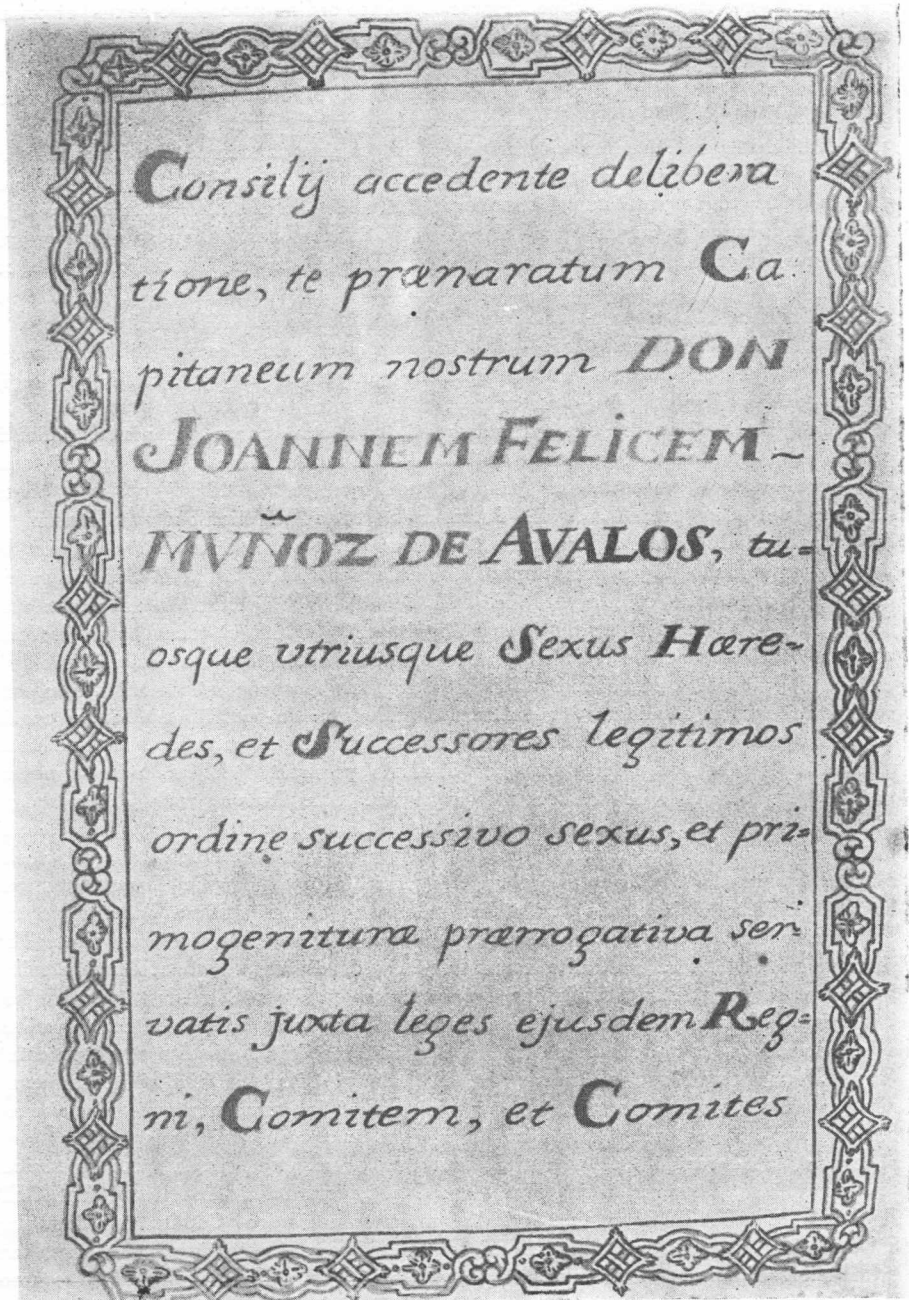 Consilij accedente delibera
tione, te prænaratum Ca
pitaneum nostrum DON
JOANNEM FELICEM ~
MVÑOZ DE AVALOS, tu=
osque vtriusque Sexus Hære-
des, et Successores legitimos
ordine successivo sexus, et pri=
mogenituræ prærrogativa ser=
vatis juxta leges ejusdem Reg=
ni, Comitem, et Comites